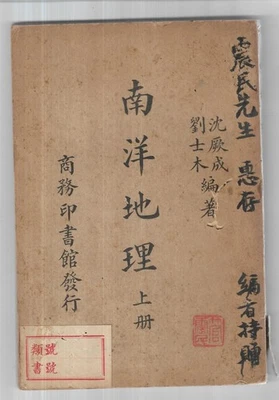 震民先生 惠存
編者持贈
沈厥成
劉士木
編著
南洋地理
上册
商務印書館發行
號號
類書